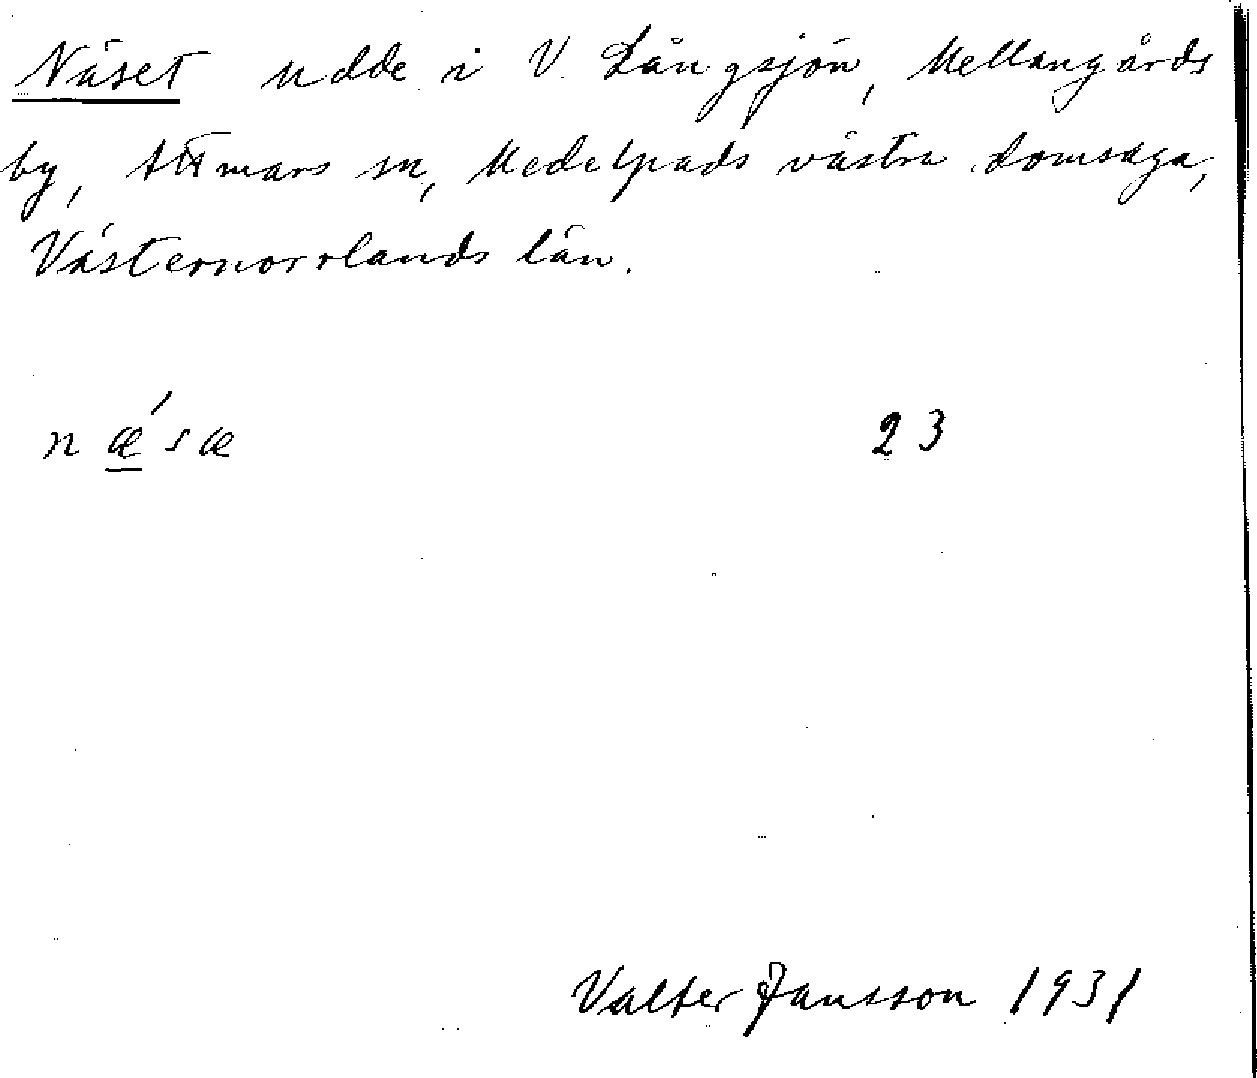 Näset udde i V. Långsjön, Mellangårds
by, Attmars sn, Medelpads västra domsaga,
Västernorrlands län.
nǽ̲sæ 23
Valter Jansson 1931